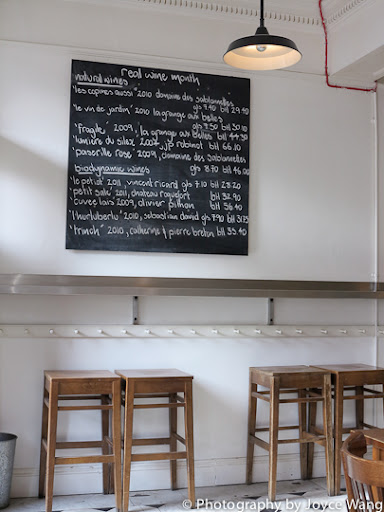 real wine month
natural wines
"les copines aussi" 2010 domaine des sablonnelles
gls 7.50 btl 29.90
"le vin de jardin" 2010 la grange aux belles
gls 7.50 btl 30.10
"fragile" 2009, la grange aux belles btl 44.30
"lumière du silex" 2009, JP robinot btl 66.10
"passerille rose" 2009, domaine des sablonnelles
biodynamic wines gls 8.70 btl 46.00
"le petit" 2011, vincent ricard gls 7.10 btl 28.20
"petit sale" 2011, chateau roquefort btl 32.90
"cuvee lois 2009, olivier pithon btl 36.40
"l'hurluberlu" 2010, sebastian david gls 7.90 btl 31.75
"trinch" 2010, catherine & pierre breton btl 35.40
© Photography by Joyce Wang